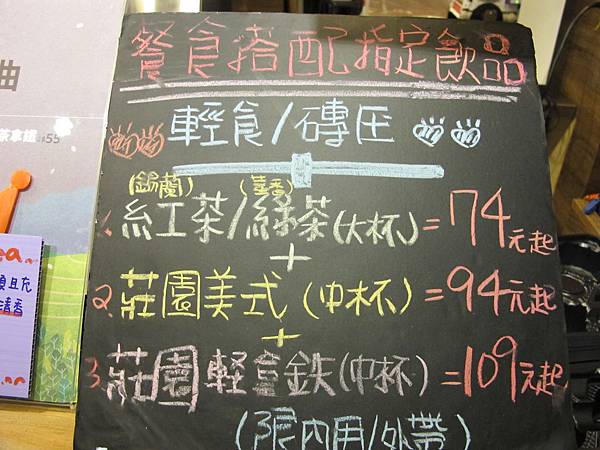 餐食搭配指定飲品
輕食/磚压
(錫蘭) (薰香)
1. 紅茶/綠茶(大杯)=74元起
+
2. 莊園美式(中杯)=94元起
+
3. 莊園輕拿鉄(中杯)=109元起
(限內用/外帶)
曲
茶拿鐵 $55
且充
清香